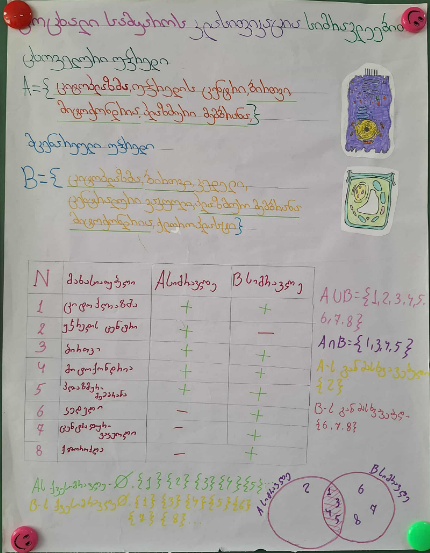 ცოცხალი სამყაროს კლასიფიკაცია სიმრავლეებით
ცხოველური უჯრედი
A={ ციტოპლაზმა, უჯრედის ცენტრი, ბირთვი
მიტოქონდრია, პლაზმური მემბრანა}
მცენარეული უჯრედი
B={ ციტოპლაზმა, ბირთვი, კედელი,
ცენტრალური ვაკუოლი, პლაზმური მემბრანა
მიტოქონდრია, ქლოროპლასტი}
N მახასიათებელი A სიმრავლე B სიმრავლე
1 ციტოპლაზმა + +
2 უჯრედის ცენტრი + −
3 ბირთვი + +
4 მიტოქონდრია + +
5 პლაზმური მემბრანა + +
6 კედელი − +
7 ცენტრალური ვაკუოლი − +
8 − +
A∪B={1,2,3,4,5,
6,7,8}
A∩B={1,3,4,5}
A-ს განმასხვავებელი
{2}
B-ს განმასხვავებელი
{6,7,8}
A ს ქვესიმრავლე - ∅, {1} {2} {3} {4} {5}
B-ს ქვესიმრავლე ∅, {1} {3} {4} {5} {6}
{7} {8}
A სიმრავლე B სიმრავლე
2 1 3 4 5 6 7 8